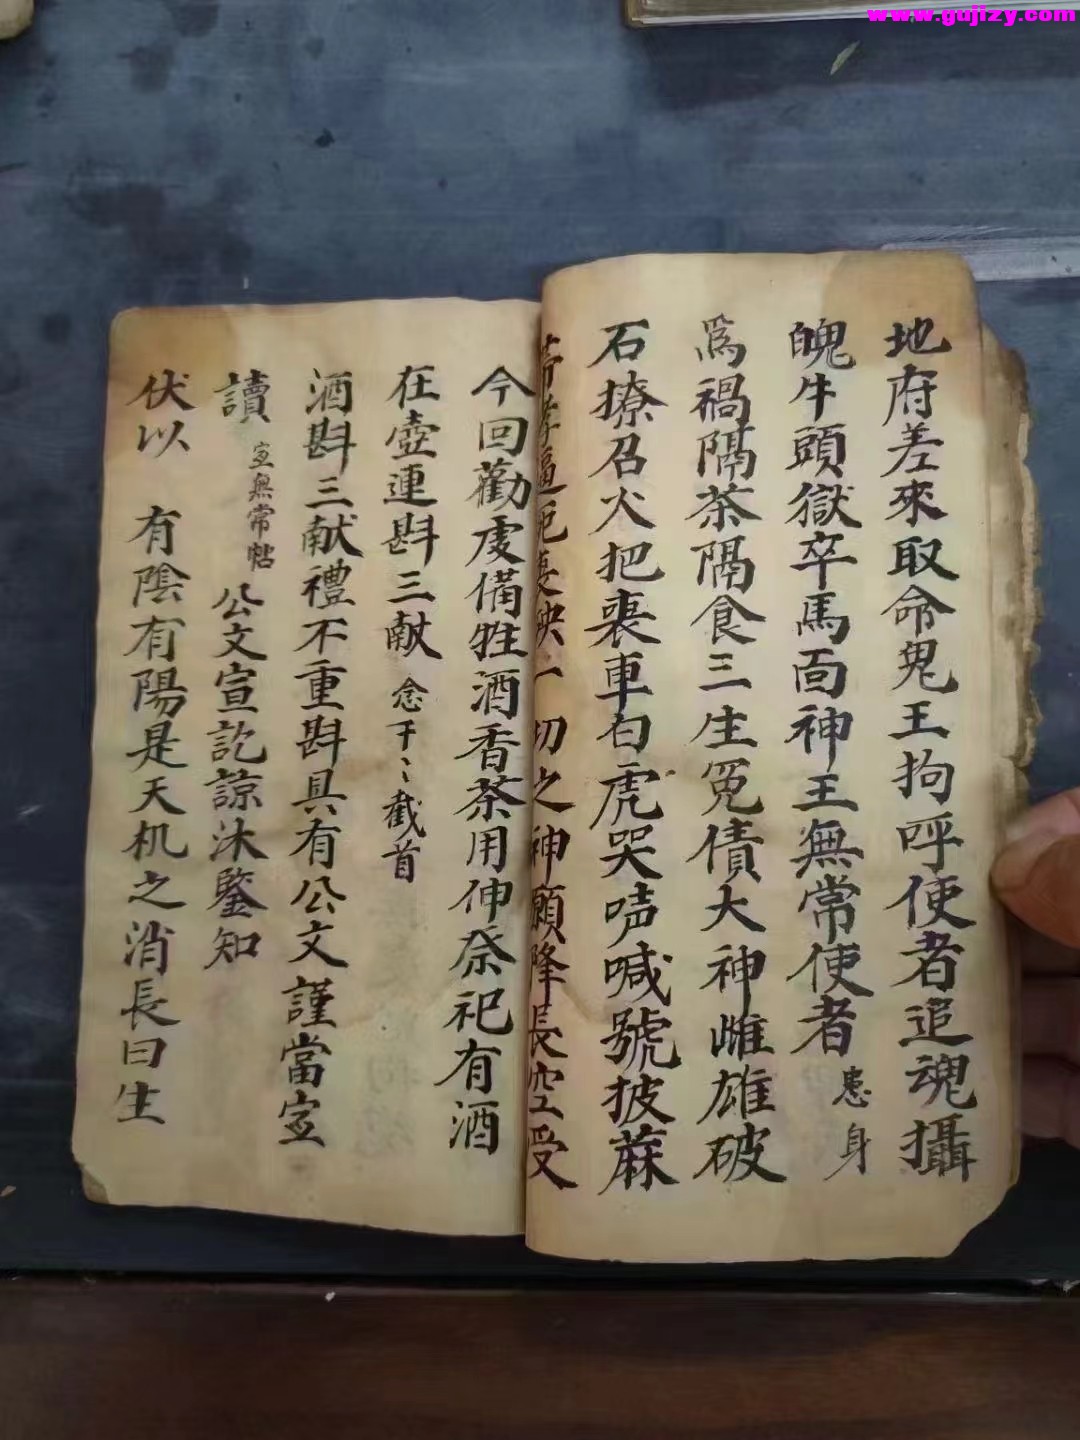 www.gujizy.com
地府差來取命鬼王拘呼使者追魂攝
魄牛頭獄卒馬面神王無常使者 患身
為禍隔茶隔食三生冤債大神雌雄破
石撩召火把喪車白虎哭哃喊號披蔴
一切之神願降長空受
今回勸虔備牲酒香茶用伸祭祀有酒
在壺連斟三献 念干〻截首
酒斟三献禮不重斟具有公文謹當宣
讀 宣無常帖 公文宣訖諒沐鑒知
伏以 有陰有陽是天机之消長曰生